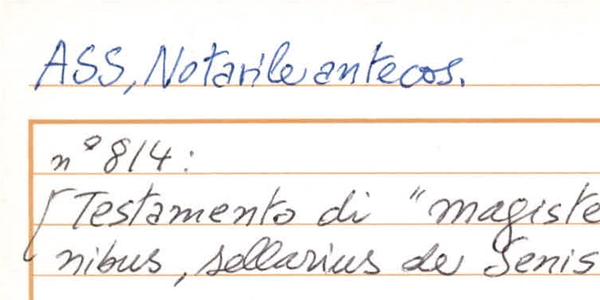 ASS, Notarile antecos.
n° 814:
[Testamento di "magiste
nibus, sellarius de Senis